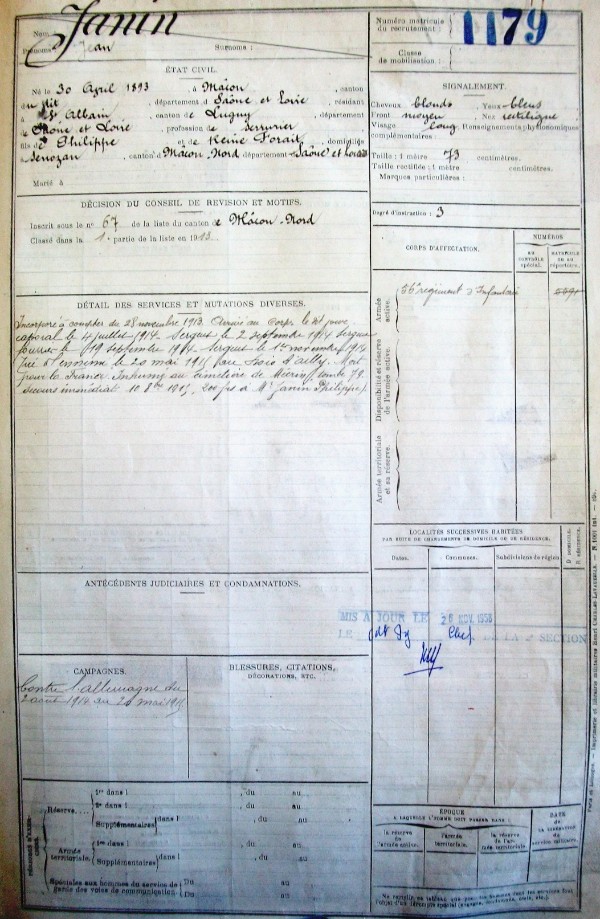 Nom : Janin
Prénoms : Jean
Surnoms :
Numéro matricule
du recrutement :
1179
Classe
de mobilisation :
ÉTAT CIVIL.
Né le 30 Avril 1893, à Mâcon, canton
du dit, département d Saône et Loire, résidant
à St Albain, canton de Lugny, département
de Saône et Loire, profession de serrurier
fils de Philippe et de Reine, domiciliés
à Senozan, canton d Mâcon-Nord département Saône et Loire
Marié à
SIGNALEMENT.
Cheveux blonds, Yeux bleus
Front moyen, Nez rectiligne
Visage long, Renseignements physionomiques
complémentaires :
Taille : 1 mètre 73 centimètres.
Taille rectifiée : 1 mètre centimètres.
Marques particulières :
DÉCISION DU CONSEIL DE REVISION ET MOTIFS.
Inscrit sous le n° 67 de la liste du canton de Mâcon-Nord
Classé dans la 1e partie de la liste en 1913
Degré d'instruction : 3
CORPS D'AFFECTATION.
NUMÉROS
AU
CONTRÔLE
spécial.
MATRICULE
OU AU
répertoire.
Armée
active.
56e régiment d'Infanterie
Disponibilité et réserve
de l'armée active.
Armée territoriale
et sa réserve.
DÉTAIL DES SERVICES ET MUTATIONS DIVERSES.
Incorporé à compter du 28 novembre 1913. Arrivé au Corps le dit jour
caporal le 4 juillet 1914. Sergent le 2 septembre 1914 Sergent
fourrier le 19 septembre 1914 Sergent le 1er novembre 1914
Tué à l'ennemi le 20 mai 1915 au Bois d'Ailly. Mort
pour la France. Inhumé au cimetière de tombe 79.
Secours immédiat 10 8bre 1915 200 fs à Mr Janin Philippe
LOCALITÉS SUCCESSIVES HABITÉES
PAR SUITE DE CHANGEMENTS DE DOMICILE OU DE RÉSIDENCE.
Dates.
Communes.
Subdivisions de région.
D. DOMICILE.
R. RÉSIDENCE.
ANTÉCÉDENTS JUDICIAIRES ET CONDAMNATIONS.
MIS A JOUR LE 26 NOV. 1956
LE Chef DE LA 2e SECTION
CAMPAGNES.
Contre l'allemagne du
2 août 1914 au 20 mai 1915
BLESSURES, CITATIONS,
DÉCORATIONS, ETC.
Réserve....
1re dans l , du au
2e dans l , du au
Supplémentaires dans l , du au
Armée
territoriale.
1re dans l , du au
Supplémentaires dans l , du au
Spéciales aux hommes du service de
garde des voies de communication.
Du au
Du au
ÉPOQUE
À LAQUELLE L'HOMME DOIT PASSER DANS :
la réserve
de l'armée active.
l'armée
territoriale.
la réserve
de l'armée
territoriale.
DATE
de
la libération
du
service militaire.